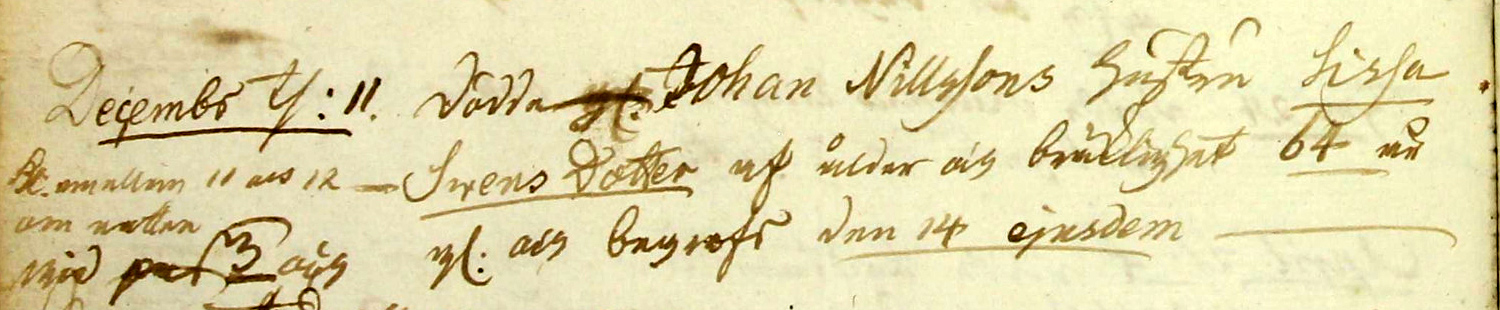 Decembr d: 11. Dödde Johan Nillssons hustru Sissa
kl. emellan 11 och 12 Swens Dotter af ålder och bräcklighet 64 åhr
om natten
gl: och begrofs den 14 ejusdem